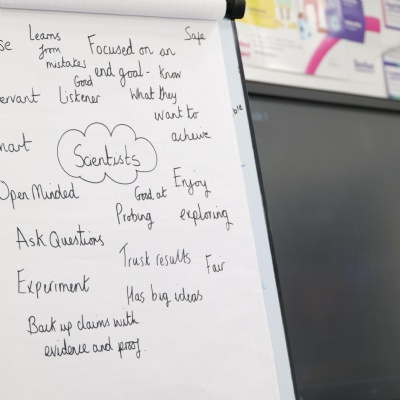 Learns
from
mistakes
Focused on an
end goal - know
what they
want to
achieve
Safe
Good
Listener
Scientists
Open Minded
Good at
Probing
Enjoy
exploring
Ask Questions
Trust results
Fair
Experiment
Has big ideas
Back up claims with
evidence and proof.